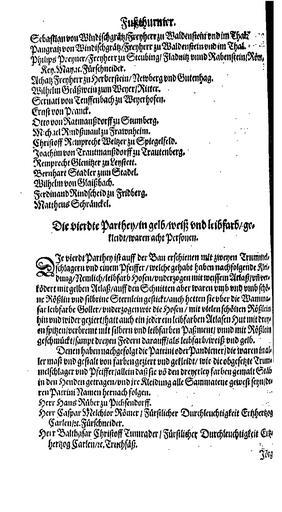 Fußthurnier.
Sebastian von Windischgrätz/Freyherr zu Waldenstein vnd im Thal.
Pangratz von Windischgrätz/Freyherr zu Waldenstein vnd im Thal.
Philips Freyherr zu Steubing/Fladnitz vnnd Rabenstein/Röm.
Key.May.ec.Fürschneider.
Achatz Freyherr zu Herberstein/Newberg vnd Gutenhag.
Wilhelm Gräßwein zum Weyer/Ritter.
Seruati von Teuffenbach zu Weyerhofen.
Ernst von Pranck.
Otto von Ratmanßdorff zu Sturmberg.
Michael Rindßmaul zu Frawnheim.
Christoff Remprecht Weltzer zu Spiegelfeld.
Joachim von Trautmanßdorff zu Trautenberg.
Remprecht Gleinitzer zu
Bernhart Stadler zum Stadel.
Wilhelm von Glaißbach.
Ferdinand Rindscheid zu Fridberg.
Mattheus Schränckel.
Die vierdte Parthey/in gelb/weiß vnd leibfarb/ge-
kleidt/waren acht Personen.
Die vierdt Parthey ist auff der Ban erschienen mit zweyen Trumme-
schlagern vnnd einem Pfeiffer/welche gehabt haben nachfolgende Klei-
dung/Nemlich/leibfarb Hosen/vnderzogen mit weissem Atlaß/
ködert mit gelben Atlaß/auff den Schnitten aber waren vmb vnd vmb schö-
ne Rößlin vnd silbrine Sternlein gestickt/auch hetten sie vber die Wamma-
leibfarbe Goller/vnderzogen wie die Hosen/mit vielen schönen Rößlin
hin vnd wider geziert/hatt auch ein jeden leibfarben Atlassen Hut mit drey-
en spitzen/verbremt mit silbern vnd leibfarben Paßment/vnnd mit Rößlein
geschmückt/sampt dreyen Federn darauff/als leibfarb/weiß vnd gelb.
Denen haben nachgefolgt die Patrini oder Pandiener/die waren in al-
ler maß vnd gestalt von farben geziert vnd gekleidt/wie die obgesetzte Trum-
melschlager vnd Pfeiffer/allein daß sie vō den dreyerley farben gemalt Stäb
in den Henden getragen/vnd jre Kleidung alle Sammatene gewest seyn/de-
ren Patrini Namen hernach folgen.
Herr Hans Rüber zu Pichsendorff.
Herr Caspar Melchior Römer/Fürstlicher Durchleuchtigkeit Ertzhertzog
Carlen/ec.Fürschneider.
Herr Balthasar Christoff Thanrader/Fürstlicher Durchleuchtigkeit Ertz-
hertzog Carlen/ec.Truchsäß.
Jörg